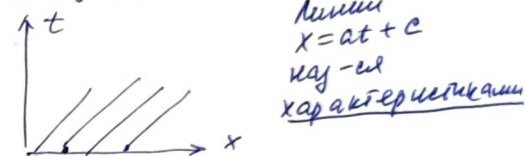 t
x
Линии
x = at + c
наз-ся
характеристиками